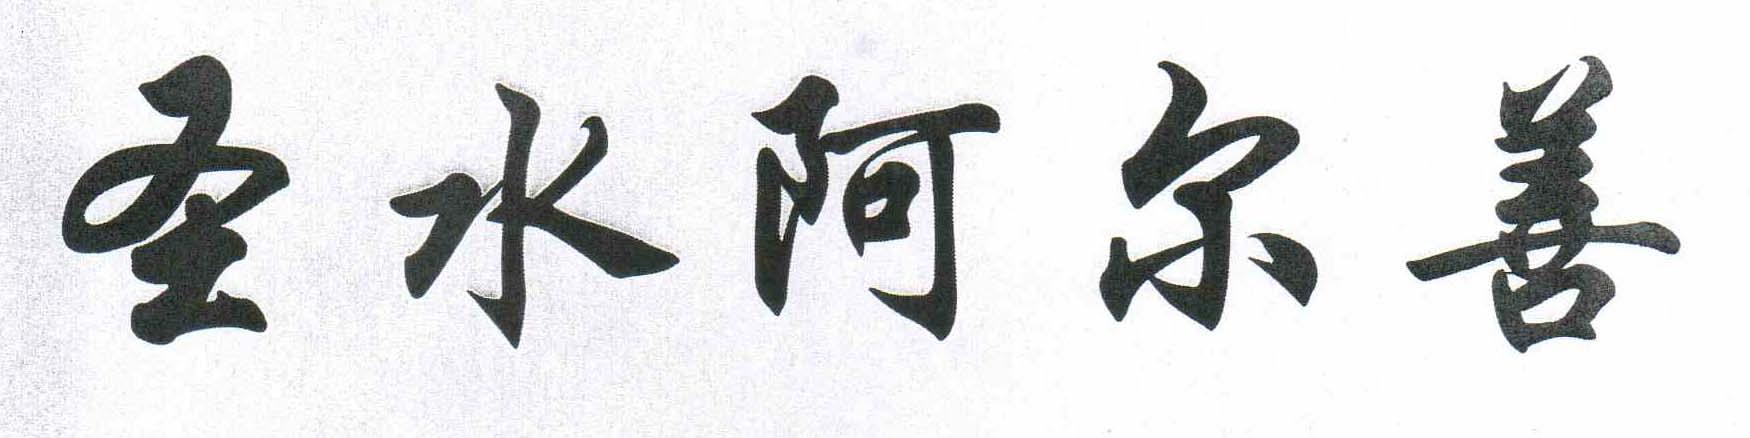 圣水阿尔善